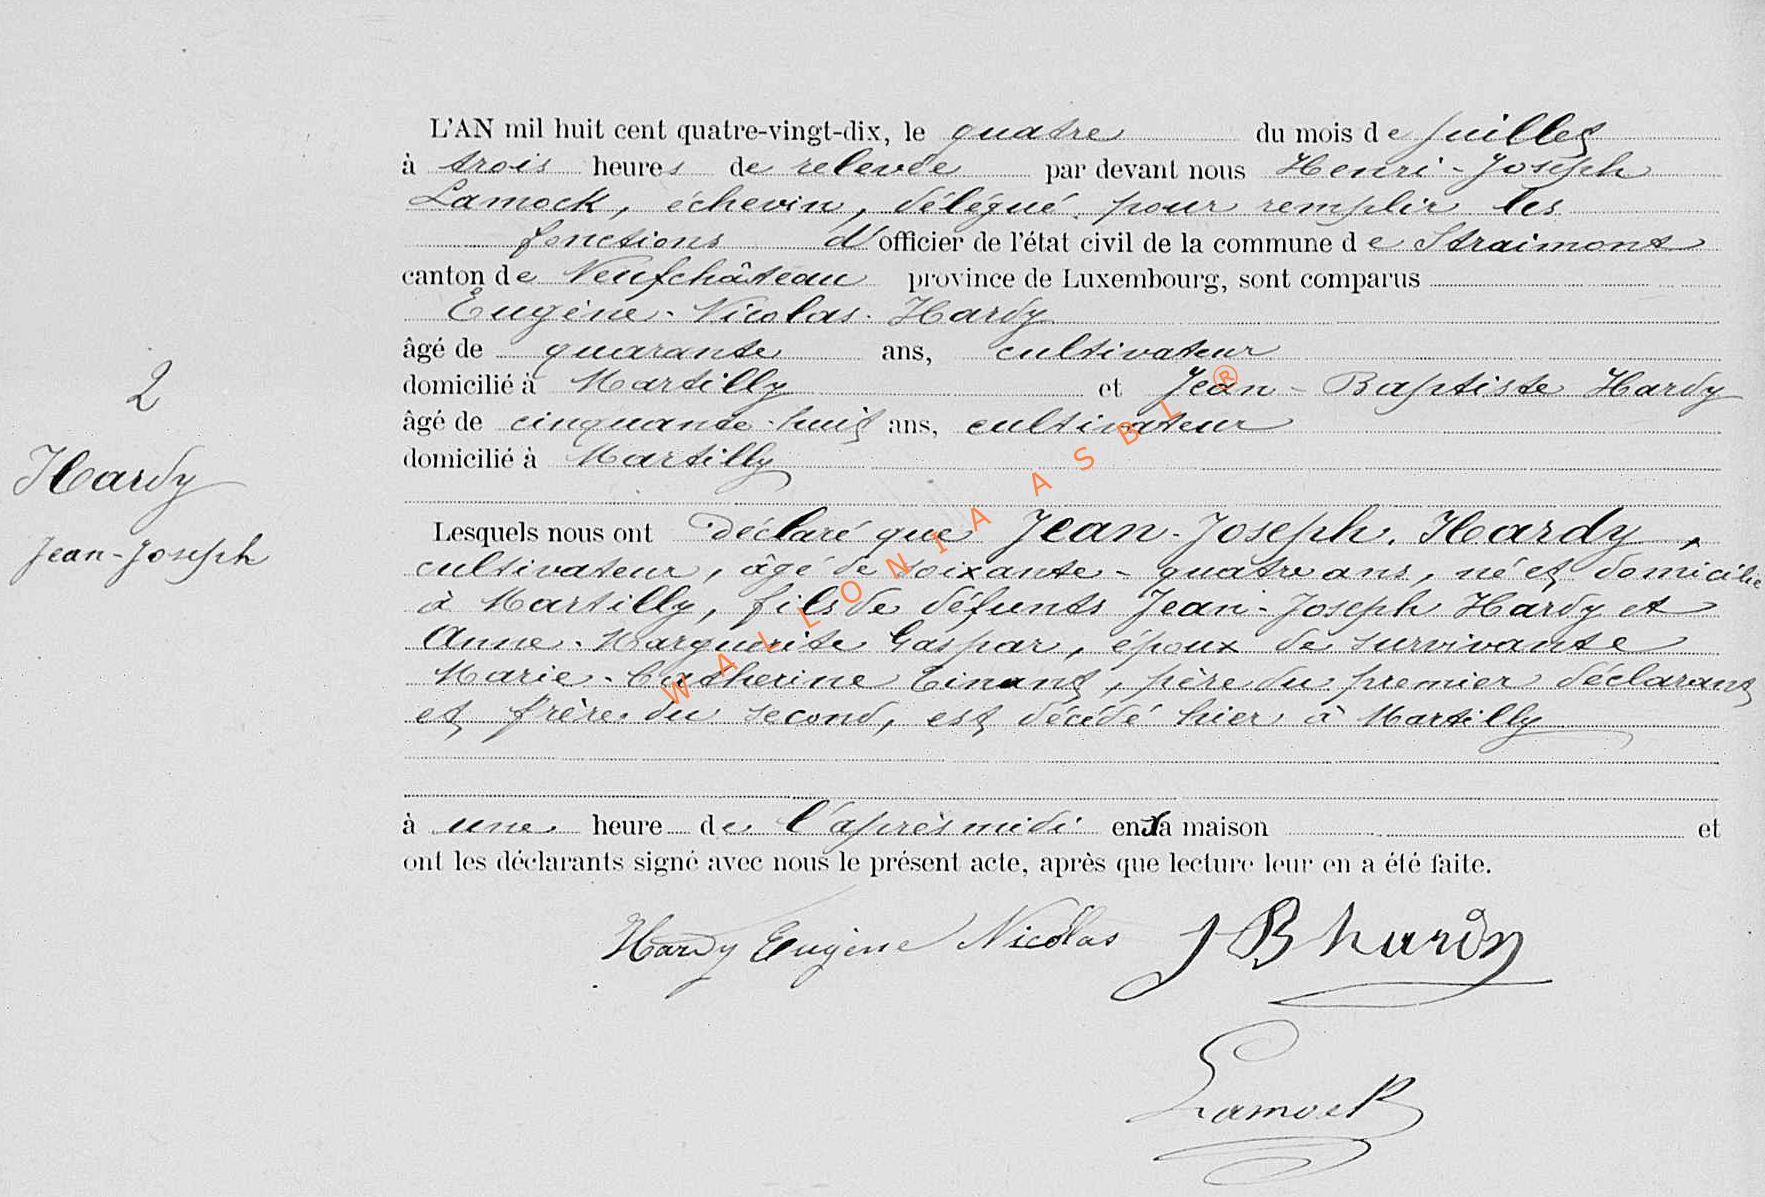 L'AN mil huit cent quatre-vingt-dix, le quatre du mois de juillet
à trois heures de relevée par devant nous Henri-Joseph
Lamock, échevin, délégué pour remplir les
fonctions d'officier de l'état civil de la commune de Straimont
canton de Neufchâteau province de Luxembourg, sont comparus
Eugène-Nicolas Hardy
âgé de quarante ans, cultivateur
domicilié à Martilly et Jean-Baptiste Hardy
âgé de cinquante-huit ans, cultivateur
domicilié à Martilly
2
Hardy
Jean-Joseph
Lesquels nous ont déclaré que Jean-Joseph Hardy,
cultivateur, âgé de soixante-quatre ans, né et domicilié
à Martilly, fils de défunts Jean-Joseph Hardy et
Anne-Marguerite Gaspar, époux de survivante
Marie-Catherine Tinant, père du premier déclarant
et frère du second, est décédé hier à Martilly
à une heure de l'après midi en sa maison et
ont les déclarants signé avec nous le présent acte, après que lecture leur en a été faite.
Hardy Eugène Nicolas JB hardy
Lamock
WALLONIA ASBL ®